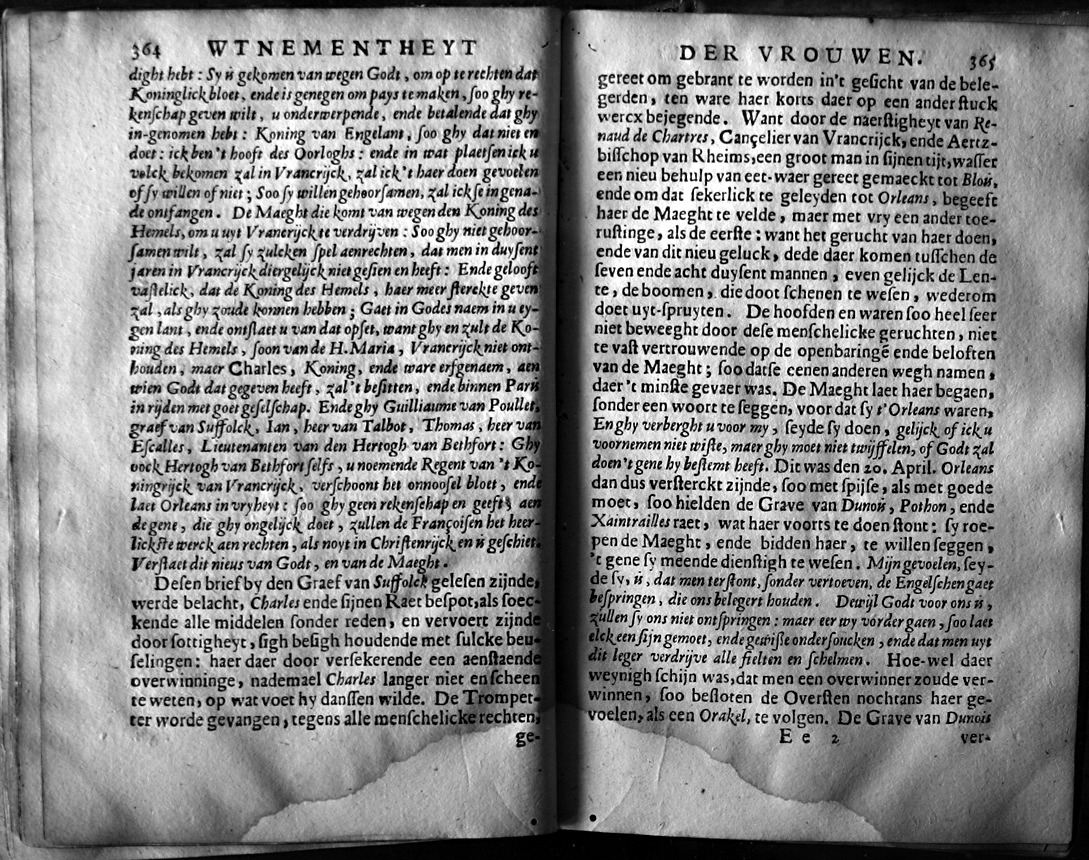 364 WTNEMENTHEYT
dight hebt : Sy is gekomen van wegen Godt, om op te rechten dat
Koninglick bloet, ende is genegen om pays te maken, soo ghy re-
kenschap geven wilt, u onderwerpende, ende betalende dat ghy
in-genomen hebt : Koning van Engelant, soo ghy dat niet en
doet : ick ben 't hooft des Oorloghs : ende in wat plaetsen ick u
volck bekomen zal in Vrancrijck, zal ick 't haer doen gevoelen
of sy willen of niet ; Soo sy willen gehoorsamen, zal ickse in gena-
de ontfangen. De Maeght die komt van wegen den Koning des
Hemels, om u uyt Vrancrijck te verdrijven : Soo ghy niet gehoor-
samen wilt, zal sy zulcken spel aenrechten, dat men in duysent
jaren in Vrancrijck diergelijck niet gesien en heeft : Ende gelooft
vastelick, dat de Koning des Hemels, haer meer sterckte geven
zal, als ghy zoude konnen hebben ; Gaet in Godes naem in u ey-
gen lant, ende ontslaet u van dat opset, want ghy en zult de Ko-
ning des Hemels, soon van de H. Maria, Vrancrijck niet ont-
houden, maer Charles, Koning, ende ware erfgenaem, aen
wien Godt dat gegeven heeft, zal 't besitten, ende binnen Paris
in rijden met goet geselschap. Ende ghy Guilliaume van Poullet,
graef van Suffolck, Ian, heer van Talbot, Thomas, heer van
Escalles, Lieutenanten van den Hertogh van Bethfort : Ghy
oock Hertogh van Bethfort selfs, u noemende Regent van 't Ko-
ningrijck van Vrancrijck, verschoont het onnoosel bloet, ende
laet Orleans in vryheyt : soo ghy geen rekenschap en geeft, aen
de gene, die ghy ongelijck doet, zullen de Françoisen het heer-
lickste werck aen rechten, als noyt in Christenrijck en is geschiet.
Verstaet dit nieus van Godt, en van de Maeght.
Desen brief by den Graef van Suffolck gelesen zijnde,
werde belacht, Charles ende sijnen Raet bespot, als soec-
kende alle middelen sonder reden, en vervoert zijnde
door sottigheyt, sigh besigh houdende met sulcke beu-
selingen : haer daer door versekerende een aenstaende
overwinninge, nademael Charles langer niet en scheen
te weten, op wat voet hy danssen wilde. De Trompet-
ter worde gevangen, tegens alle menschelicke rechten,
ge-
DER VROUWEN. 365
gereet om gebrant te worden in't gesicht van de bele-
gerden, ten ware haer korts daer op een ander stuck
wercx bejegende. Want door de naerstigheyt van Re-
naud de Chartres, Cançelier van Vrancrijck, ende Aertz-
bisschop van Rheims, een groot man in sijnen tijt, wasser
een nieu behulp van eet-waer gereet gemaeckt tot Blois,
ende om dat sekerlick te geleyden tot Orleans, begeeft
haer de Maeght te velde, maer met vry een ander toe-
rustinge, als de eerste : want het gerucht van haer doen,
ende van dit nieu geluck, dede daer komen tusschen de
seven ende acht duysent mannen, even gelijck de Len-
te, de boomen, die doot schenen te wesen, wederom
doet uyt-spruyten. De hoofden en waren soo heel seer
niet beweeght door dese menschelicke geruchten, niet
te vast vertrouwende op de openbaringē ende beloften
van de Maeght ; soo datse eenen anderen wegh namen,
daer 't minste gevaer was. De Maeght laet haer begaen,
sonder een woort te seggen, voor dat sy t'Orleans waren,
En ghy verberght u voor my, seyde sy doen, gelijck of ick u
voornemen niet wiste, maer ghy moet niet twijffelen, of Godt zal
doen 't gene hy bestemt heeft. Dit was den 20. April. Orleans
dan dus versterckt zijnde, soo met spijse, als met goede
moet, soo hielden de Grave van Dunois, Pothon, ende
Xaintrailles raet, wat haer voorts te doen stont : sy roe-
pen de Maeght, ende bidden haer, te willen seggen,
't gene sy meende dienstigh te wesen. Mijn gevoelen, sey-
de sy, is, dat men terstont, sonder vertoeven, de Engelschen gaet
bespringen, die ons belegert houden. Dewijl Godt voor ons is,
zullen sy ons niet ontspringen : maer eer wy vorder gaen, soo laet
elck een sijn gemoet, ende gewisse ondersoucken, ende dat men uyt
dit leger verdrijve alle fielten en schelmen. Hoe-wel daer
weynigh schijn was, dat men een overwinner zoude ver-
winnen, soo besloten de Oversten nochtans haer ge-
voelen, als een Orakel, te volgen. De Grave van Dunois
E e 2 ver-